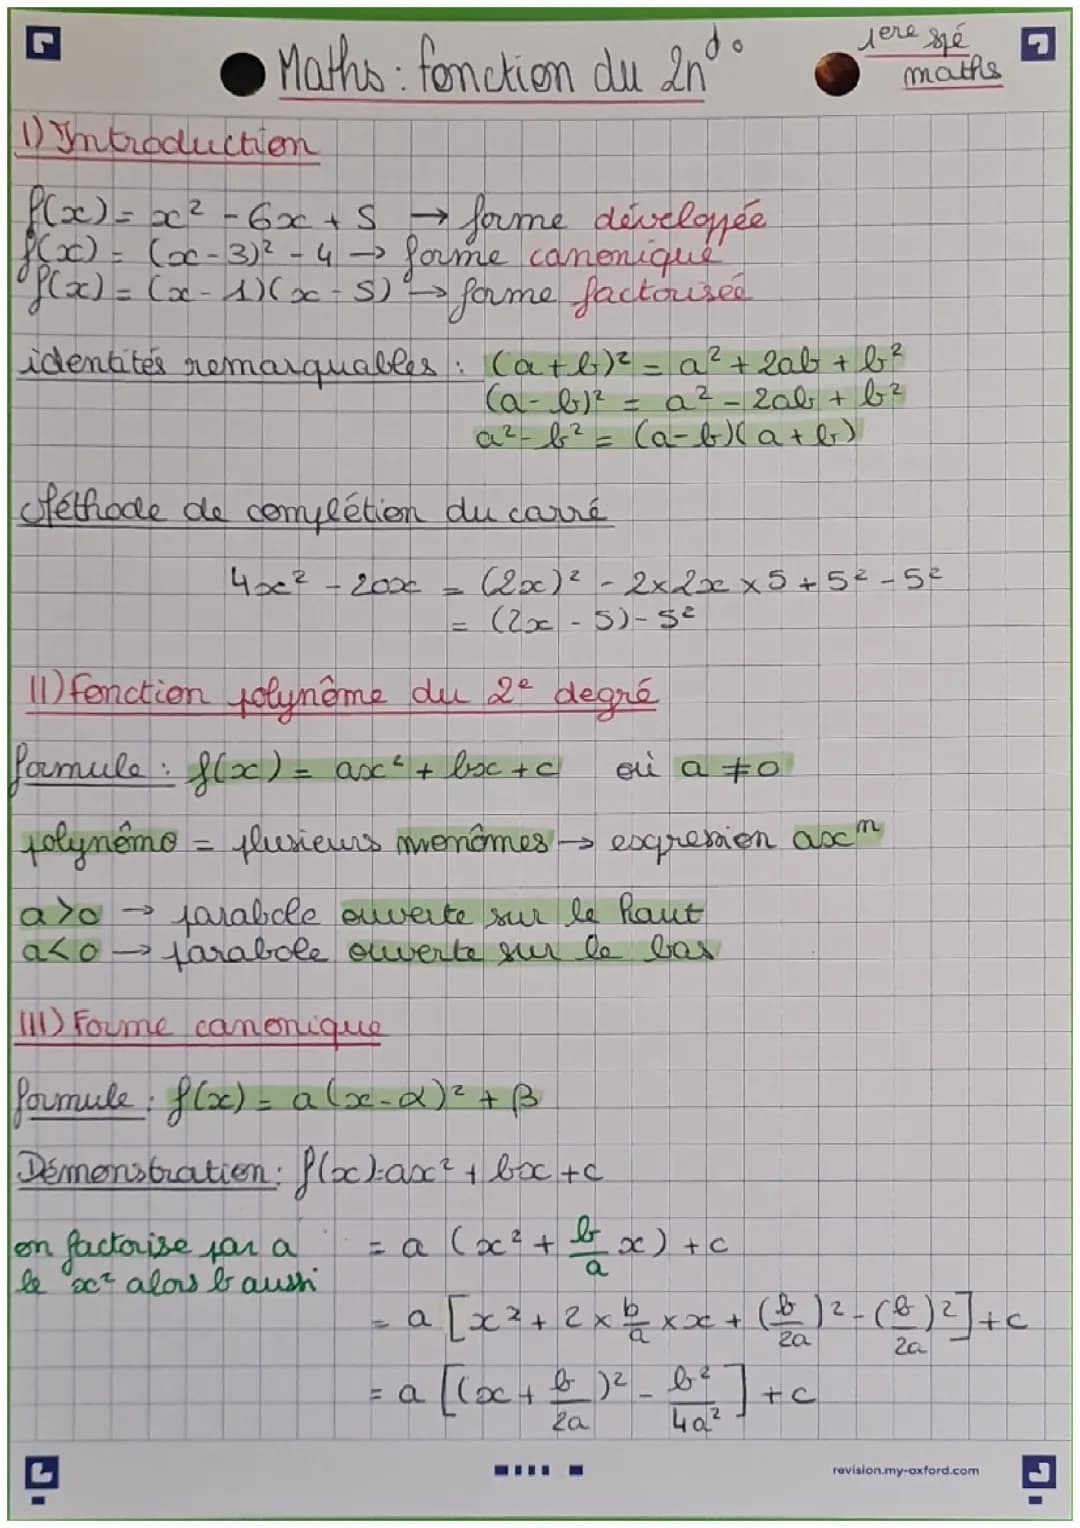 Maths : fonction du 2nd°
1ere spé
maths
I) Introduction
f(x) = x² - 6x + 5 → forme développée
f(x) = (x - 3)² - 4 → forme canonique
f(x) = (x - 1)(x - 5) → forme factorisée
identités remarquables : (a+b)² = a² + 2ab + b²
(a-b)² = a² - 2ab + b²
a² - b² = (a-b)(a+b)
Méthode de complétion du carré
4x² - 20x = (2x)² - 2×2x×5 + 5² - 5²
= (2x - 5) - 5²
II) fonction polynôme du 2e degré
formule : f(x) = ax² + bx + c où a ≠ 0
polynôme = plusieurs monômes → expression axⁿ
a>0 → parabole ouverte sur le haut
a<0 → parabole ouverte sur le bas
III) Forme canonique
formule : f(x) = a(x-α)² + β
Démonstration : f(x)=ax² + bx + c
on factorise par a = a (x² + b/a x) + c
le x² alors b aussi
= a [x² + 2 × b/a × x + (b/2a)² - (b/2a)²] + c
= a [(x + b/2a)² - b²/4a²] + c
revision.my-oxford.com